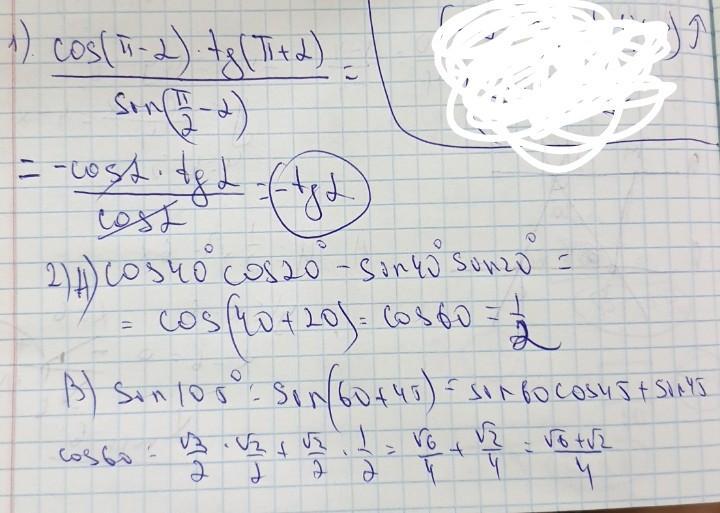 1). cos(π-α) · tg(π+α) / sin(π/2 - α) =
= -cosα · tgα / cosα = -tgα
2) А) cos40° cos20° - sin40° sin20° =
= cos(40+20) = cos60 = 1/2
В) sin105° = sin(60+45) = sin60cos45 + sin45
cos60 = √3/2 · √2/2 + √2/2 · 1/2 = √6/4 + √2/4 = √6+√2/4